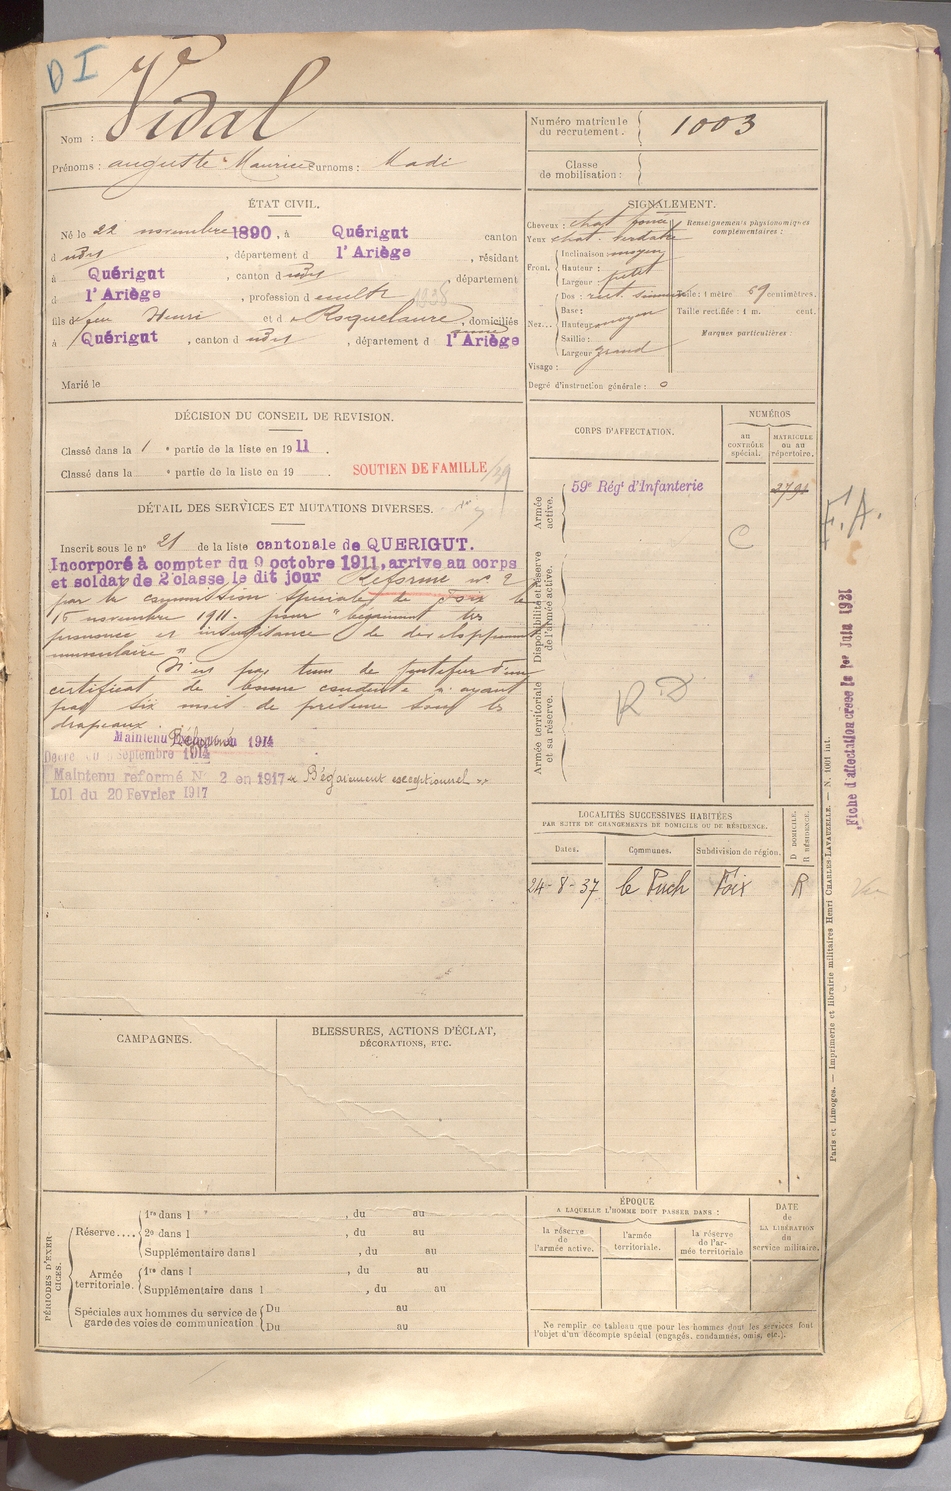 D I
Nom : Vidal
Prénoms : auguste Maurice Surnoms : Madi
Numéro matricule du recrutement. 1003
Classe de mobilisation :
ÉTAT CIVIL.
Né le 22 novembre 1890, à Quérigut canton
d udit, département d l'Ariège, résidant
à Quérigut, canton d udit, département
d l'Ariège, profession d cultr 1938
fils de feu Henri et d Roquelaure, domiciliés
à Quérigut, canton d udit, département d l'Ariège
Marié le
SIGNALEMENT.
Cheveux : chat foncé
Yeux chat. verdatre
Renseignements physionomiques complémentaires :
Front. Inclinaison moyen
Hauteur :
Largeur : petit
Nez... Dos : rect. sinueux
Base :
Hauteur moyen
Saillie :
Largeur grand
Taille : 1 mètre 69 centimètres.
Taille rectifiée : 1 m. cent.
Marques particulières :
Visage :
Degré d'instruction générale : 0
DÉCISION DU CONSEIL DE REVISION.
Classé dans la 1e partie de la liste en 1911.
Classé dans la e partie de la liste en 19 .
SOUTIEN DE FAMILLE
DÉTAIL DES SERVICES ET MUTATIONS DIVERSES.
Inscrit sous le no 21 de la liste cantonale de QUERIGUT.
Incorporé à compter du 9 octobre 1911, arrive au corps
et soldat de 2e classe le dit jour Réformé no 2
par la commission spéciale de Foix le
15 novembre 1911. pour "bégaiement très
prononcé et insuffisance de développement
musculaire "
N'est pas tenu de justifier d'un
certificat de bonne conduite n'ayant
pas six mois de présence sous les
drapeaux.
Maintenu Réformé 1914
Décret du 9 septembre 1914
Maintenu reformé No 2 en 1917 « Bégaiement exceptionnel »
LOI du 20 Fevrier 1917
CORPS D'AFFECTATION.
NUMÉROS
au CONTRÔLE spécial.
MATRICULE ou au répertoire.
Armée active.
59e Régt d'Infanterie
Disponibilité et réserve de l'armée active.
C
Armée territoriale et sa réserve.
R D
F. A.
Fiche d'affectation créée le 1er Juin 1921
LOCALITÉS SUCCESSIVES HABITÉES
PAR SUITE DE CHANGEMENTS DE DOMICILE OU DE RÉSIDENCE.
D DOMICILE. R RÉSIDENCE.
Dates. Communes. Subdivision de région.
24-8-37 le Puch Foix R
CAMPAGNES.
BLESSURES, ACTIONS D'ÉCLAT,
DÉCORATIONS, ETC.
PÉRIODES D'EXERCICES.
Réserve.... 1re dans l , du au
2e dans l , du au
Supplémentaire dans l , du au
Armée territoriale. 1re dans l , du au
Supplémentaire dans l , du au
Spéciales aux hommes du service de garde des voies de communication Du au
Du au
ÉPOQUE
A LAQUELLE L'HOMME DOIT PASSER DANS :
la réserve de l'armée active.
l'armée territoriale.
la réserve de l'armée territoriale
DATE de LA LIBÉRATION du service militaire.
Ne remplir ce tableau que pour les hommes dont les services font
l'objet d'un décompte spécial (engagés, condamnés, omis, etc.).
Paris et Limoges. — Imprimerie et librairie militaires Henri CHARLES-LAVAUZELLE. — N. 1001 int.